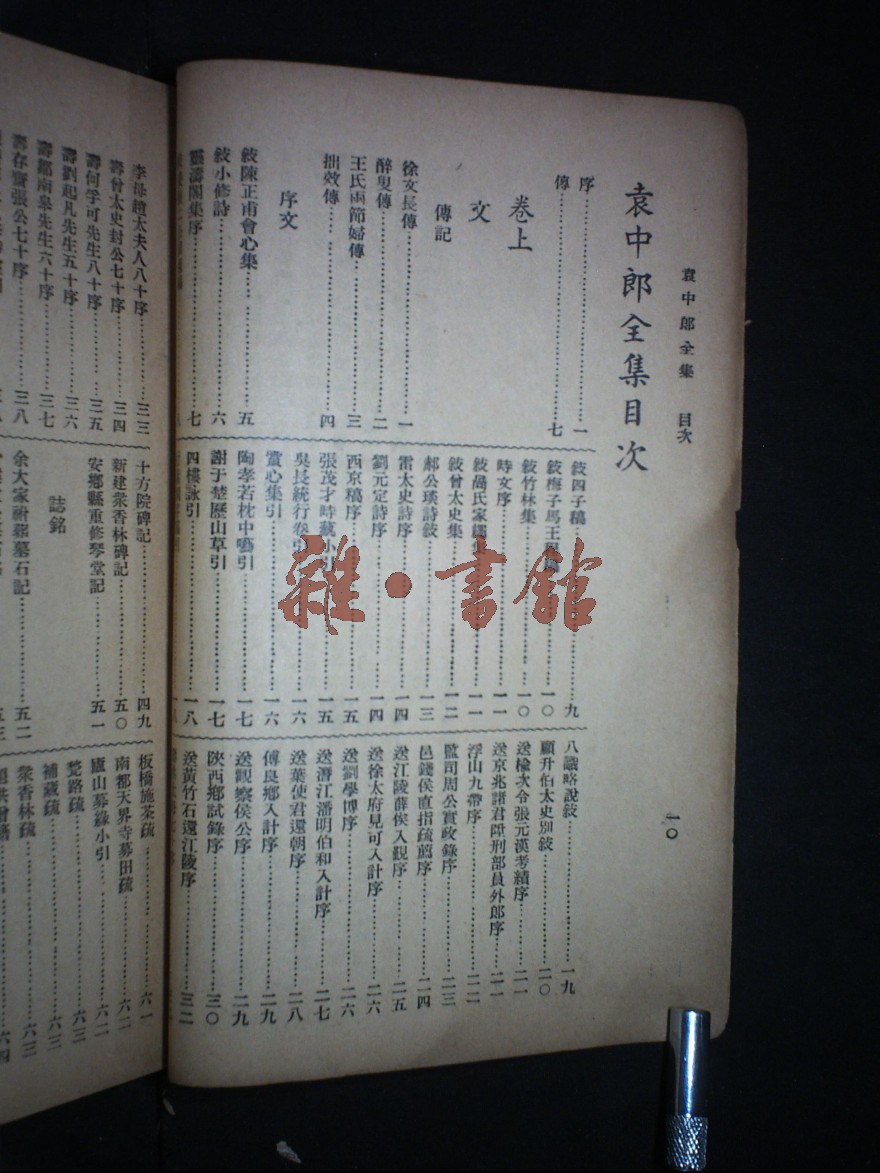 袁中郎全集 目次
一〇
袁中郎全集目次
序……一
傳……七
卷上
文
傳記
徐文長傳……一
醉叟傳……二
王氏兩節婦傳……三
拙效傳……四
序文
敍陳正甫會心集……五
敍小修詩……六
濤閣集序……七
敍四子稿……九
敍梅子馬王……一〇
敍竹林集……一〇
時文序……一一
敍咼氏家繩集……一一
敍曾太史集……一二
郝公琰詩敍……一三
雷太史詩序……一四
劉元定詩序……一四
西京稿序……一五
張茂才時藝小引……一五
吳長統行卷引……一六
賞心集引……一六
陶孝若枕中囈引……一七
謝于楚歷山草引……一七
四樓詠引……一八
八識略說敍……一九
顧升伯太史別敍……二〇
送榆次令張元漢考績序……二一
送京兆諸君陞刑部員外郎序……二一
浮山九帶序……二二
監司周公實政錄序……二三
邑錢侯直指疏薦序……二四
送江陵薛侯入覲序……二五
送徐太府見可入計序……二六
送劉學博序……二六
送潛江潘明伯和入計序……二七
送葉使君還朝序……二八
傅良鄉入計序……二九
送觀察侯公序……二九
陝西鄉試錄序……三〇
送黃竹石還江陵序……三二
李母趙太夫人八十序……三三
壽曾太史封公七十序……三四
壽何孚可先生八十序……三五
壽劉起凡先生五十序……三六
壽鄒南皋先生六十序……三七
壽存齋張公七十序……三八
十方院碑記……四九
新建衆香林碑記……五〇
安鄉縣重修琴堂記……五一
誌銘
余大家祔葬墓石記……五二
板橋施茶疏……六一
南都天界寺募田疏……六二
廬山募緣小引……六二
甃路疏……六三
補藏疏……六三
衆香林疏……六三
雜·書館